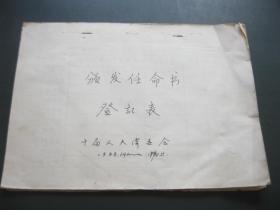 颁发任命书
登记表
十届人大常委会